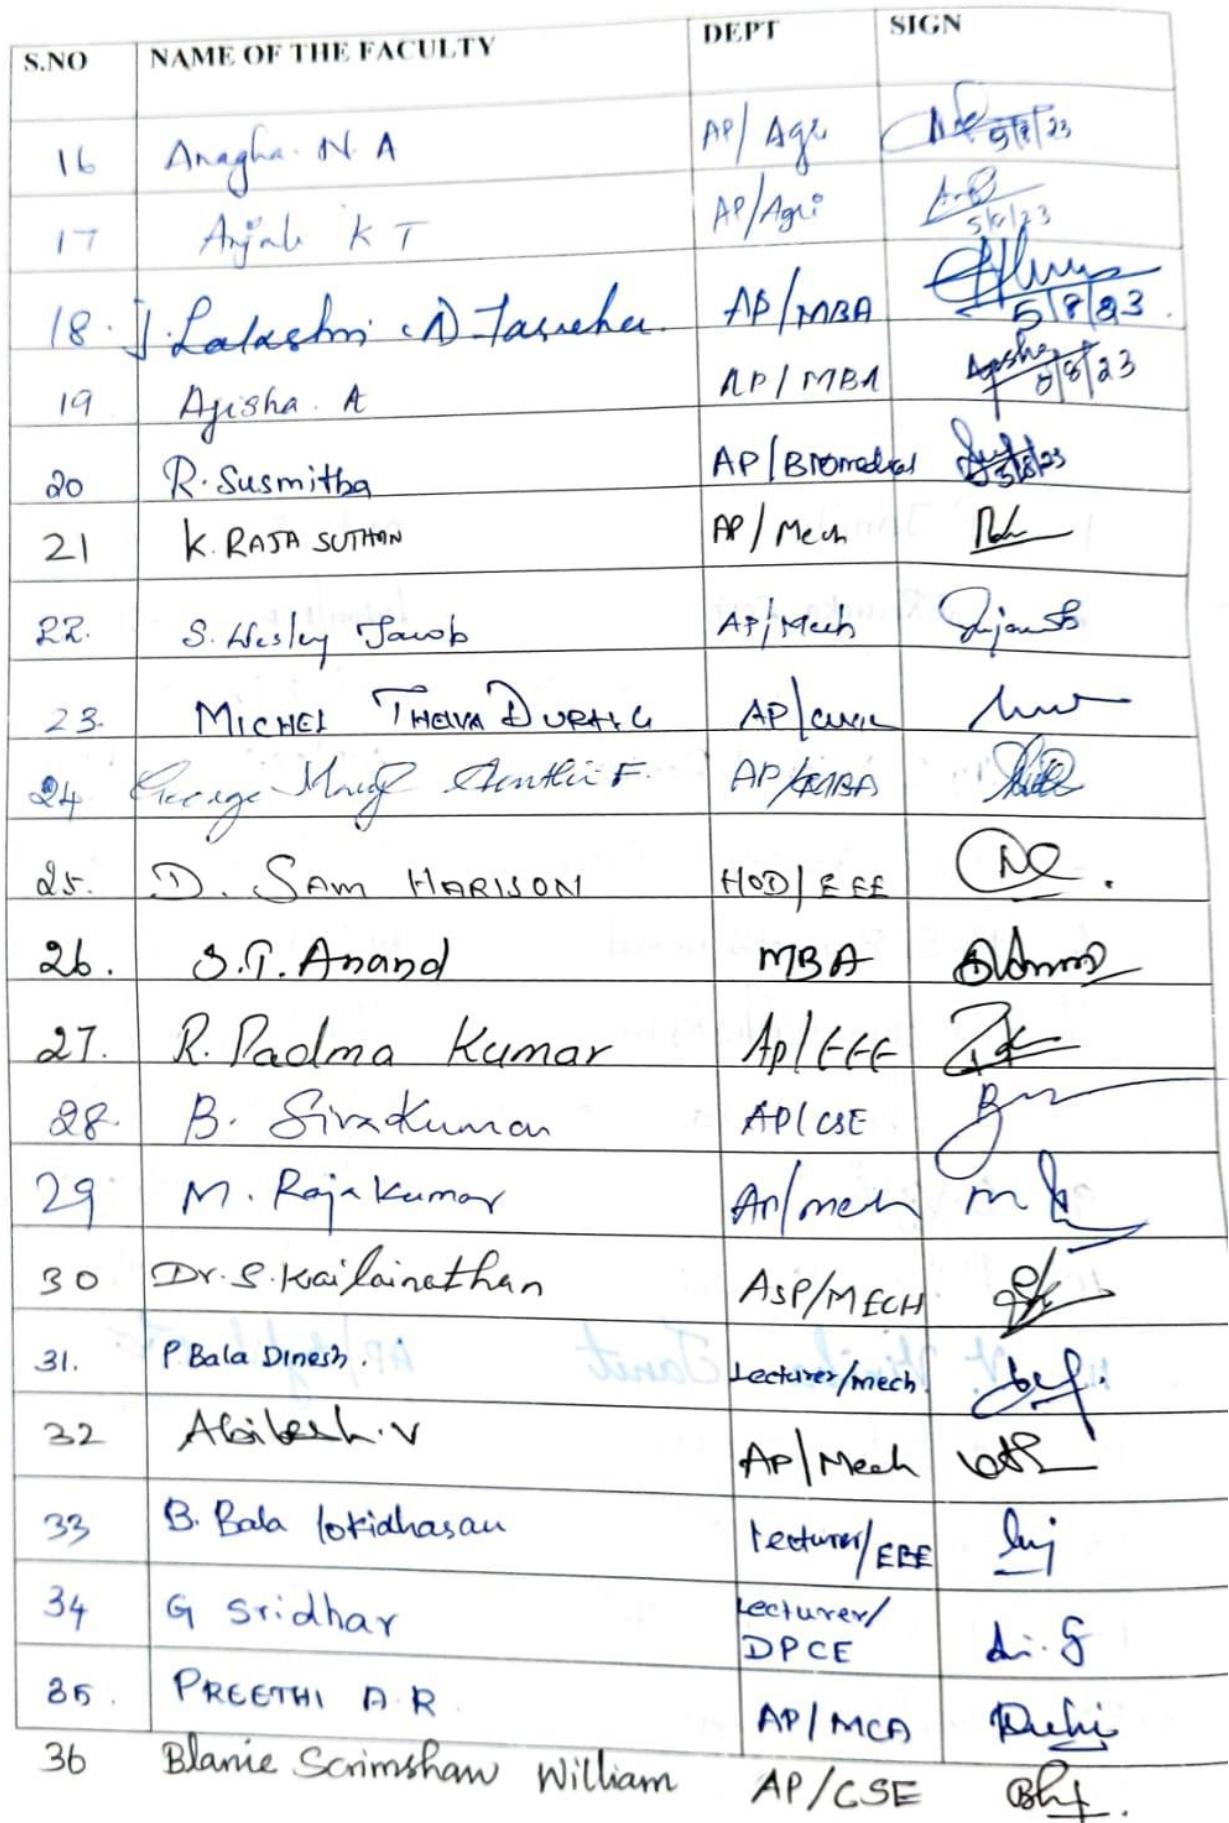 S.NO NAME OF THE FACULTY DEPT SIGN
16 Anagha. N. A AP/Agri 5/8/23
17 Anjali K T AP/Agri 5/8/23
18. J. Lakshmi AP/MBA 5/8/23.
19 Ajisha. A AP/MBA Ajisha 5/8/23
20 R. Susmitha AP/Biomedical 5/8/23
21 K. RAJA SUTHAN AP/Mech
22. S. Wesley Jacob AP/Mech
23. MICHEL THEIVA DURAI G AP/CIVIL
24 George F. AP/MBA
25. D. SAM HARISON HOD/EEE
26. S.T. Anand MBA
27. R. Padma Kumar Ap/EEE
28. B. Sivakumar AP/CSE
29 M. Rajakumar AP/mech
30 Dr. S. Kailainathan AsP/MECH
31. P Bala Dinesh. Lecturer/mech.
32 V AP/Mech
33 B. Bala lokidhasan Lecturer/EEE
34 G Sridhar Lecturer/
DPCE
35. PREETHI A.R AP/MCA
36 Blanie Scrimshaw William AP/CSE